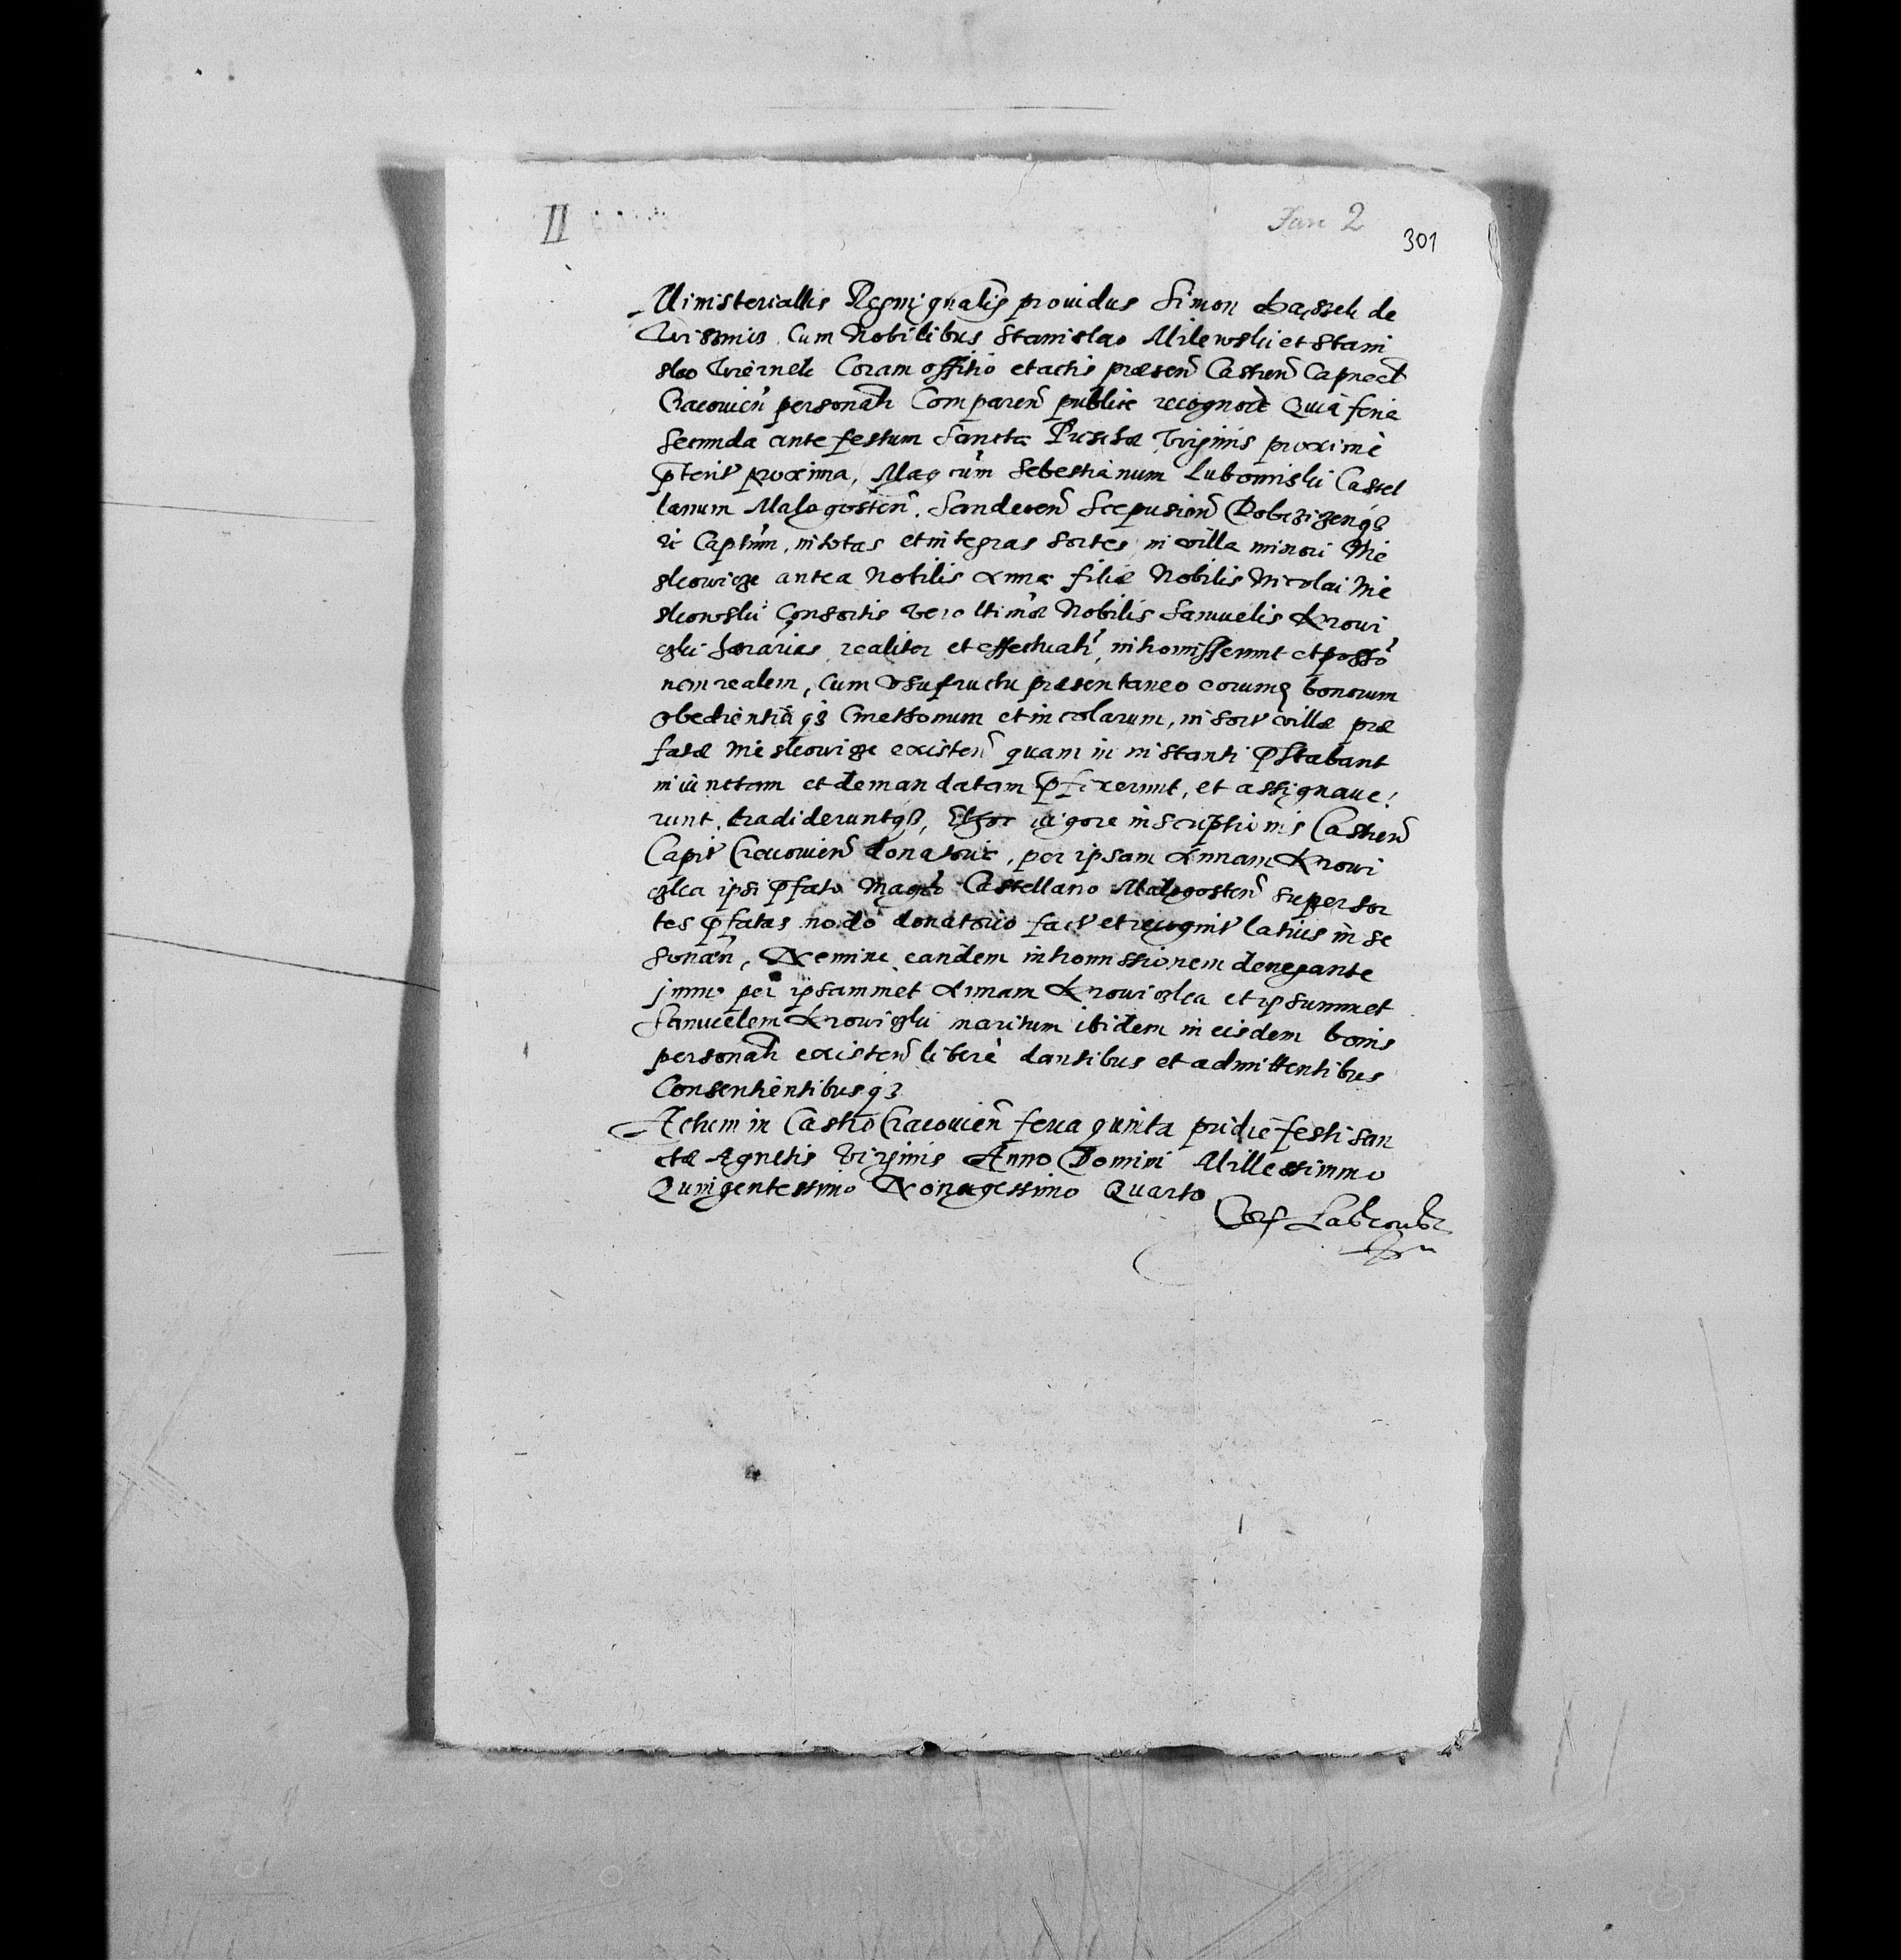 II
Jan 2
301
Ministerialis Regni gnalis prouidus Simon de
Cum Nobilibus Stanislao Milewski et Stani
slao Coram offitio et actis præsen Castren Capneal
Cracouien personalr Comparen publice recognoit Quia feria
Secunda ante festum Sanctæ Priscæ Virginis proximè
pterit proxima, Mag cum Sebestianum Lubomirski Castel
lanum Malogosten. Sandecen Scepusien Dobczizenq3
Captum, in totas et integras sortes in villa minori Mie
skowicze antea Nobilis Annæ filiæ Nobilis Nicolai Mie
skowski Consortis vero ltimæ Nobilis Samuelis Krowi
czki realiter et effectualr, intromisserunt et posso
nem realem, Cum vsufructu præsentaneo eorumq bonorum
obedientiaq3 Cmethonum et incolarum, in sort villæ præ
fatæ Mieskowicze existen quam in instanti pstabant
iniunctam et demandatam pfixerunt, et assignaue
runt, tradideruntq3, uigore inscriptionis Castren
Capit Cracouien donatoriæ, per ipsam Annam Krowi
czka ipsi pfato Magco Castellano Malogosten super sor
tes pfatas donatorio fact et recognit latius in se
sonan, Nemine eandem intromissionem denegante
jmmo per ipsammet Annam Krowiczka et ipsummet
Samuelem Krowiczki maritum ibidem in eisdem bonis
personalr existen liberè dantibus et admittentibus
Consentientibusq3
Actum in Castro Cracouien feria quinta pridie festi San
ctæ Agnetis Virginis Anno Domini Millessimmo
Quingentessimo Nonagessimo Quarto